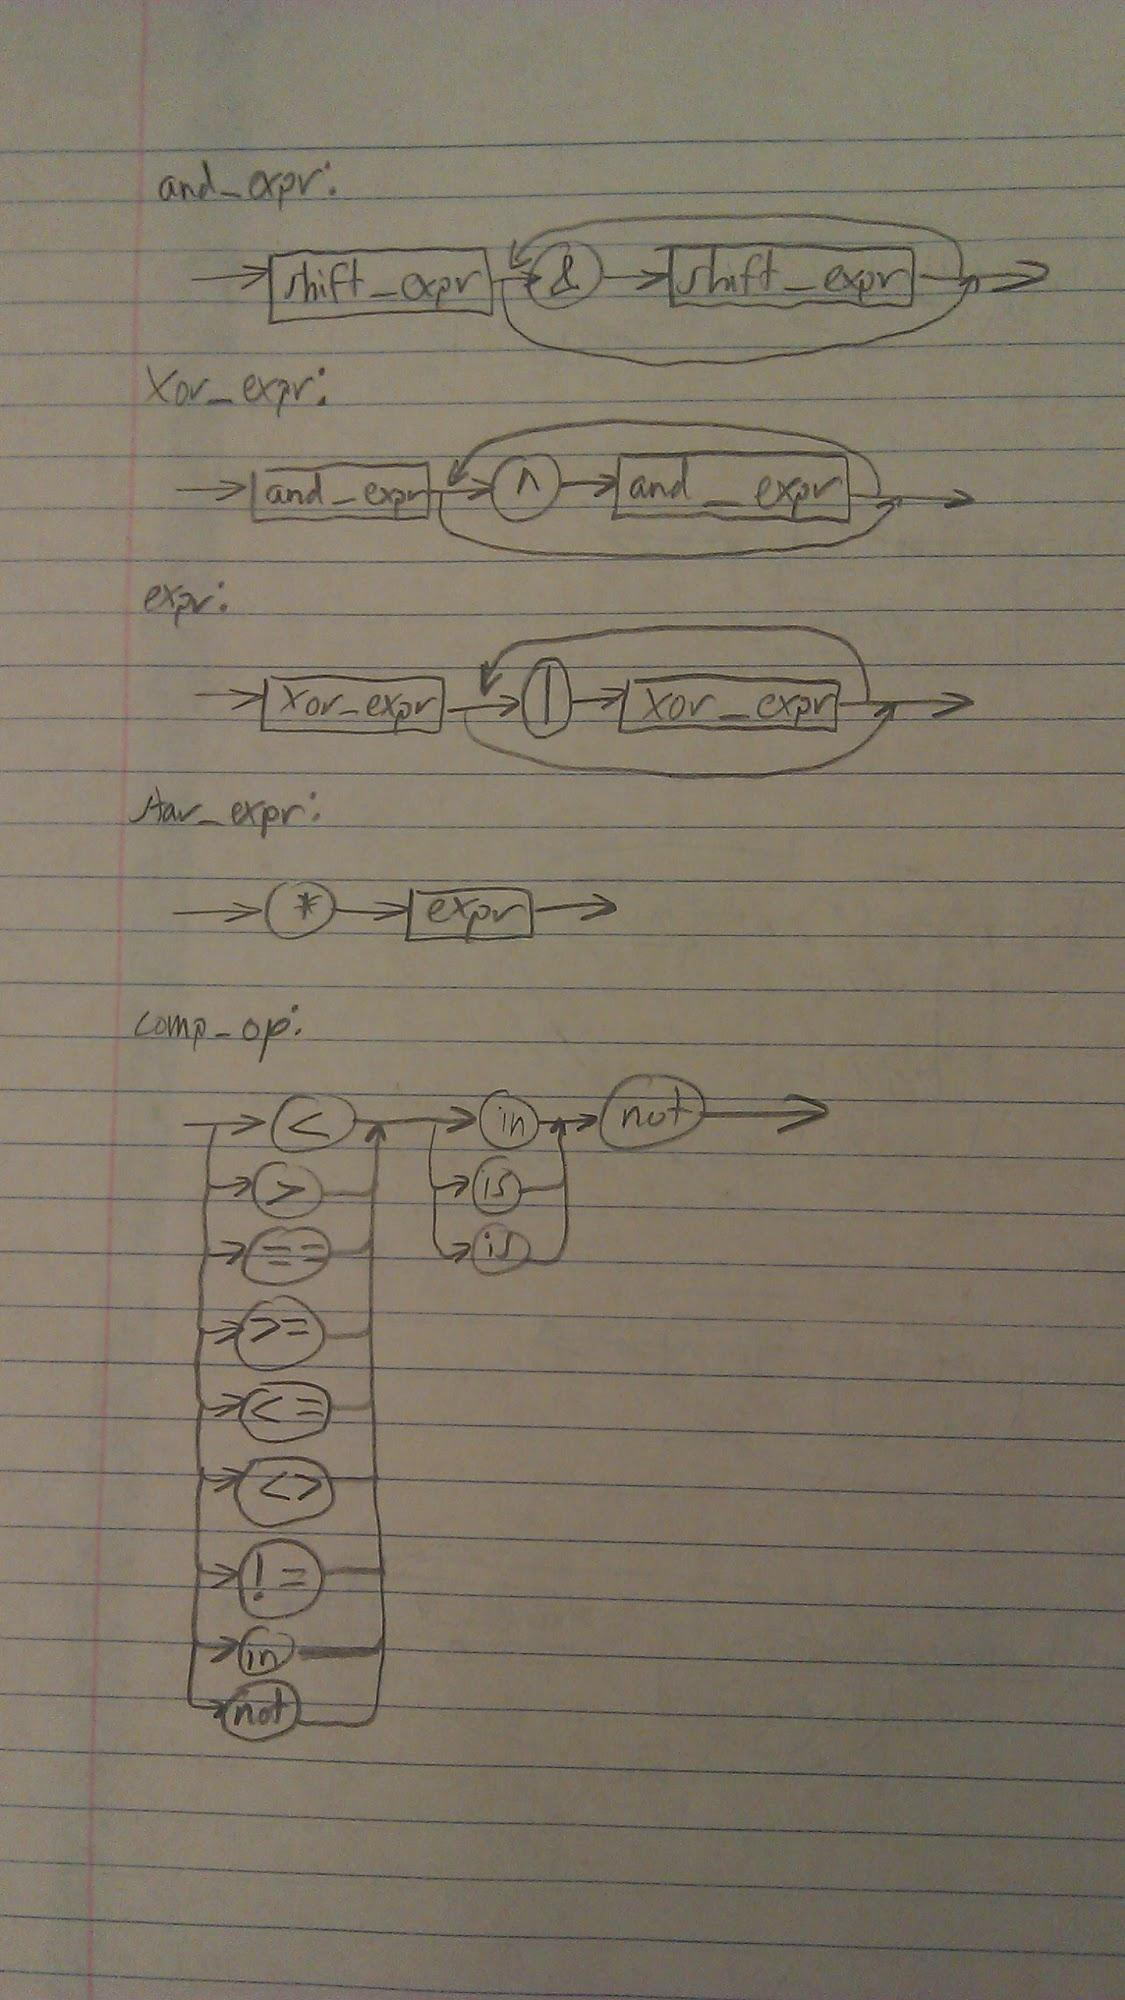 and_expr:
shift_expr & shift_expr
Xor_expr:
and_expr ^ and_expr
expr:
Xor_expr | Xor_expr
star_expr:
* expr
comp_op:
< in not
> is
== is
>=
<=
<>
!=
in
not